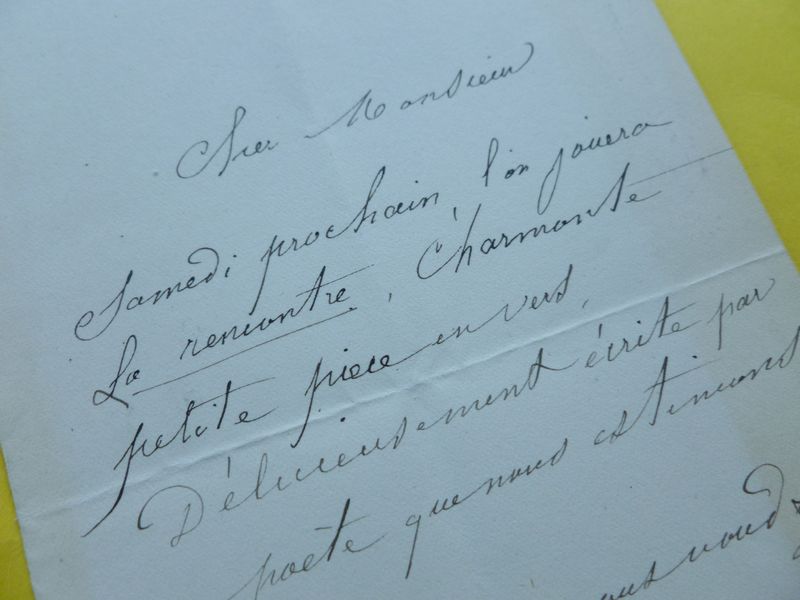 Cher Monsieur
Samedi prochain, l'on jouera
La rencontre, Charmante
petite piece en vers,
Délicieusement écrite par
poëte que nous estimons
vous voud